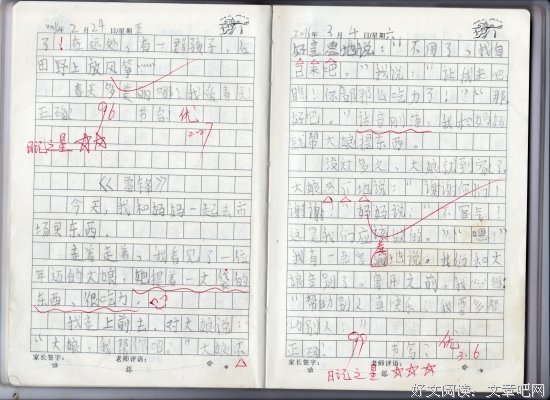 2月24日/星期五
了！在远处，有一群孩子，在
田野上放风筝……
春天多美丽啊！我爱春天
正确： 96 书写：优
2-27
日记之星☆☆
《雷锋》
今天，我和妈妈一起去市
场买东西。
走着走着，我看见了一位
年迈的大娘，她提着一大袋的
东西，很吃力。
我走上前去，对大娘说：
“大娘，我帮你吧！”大娘不
家长签字： 老师评语：
3月4日/星期六
好意思地说：“不用了，我自
己来吧。”我说：“让我来吧
！你都那么吃力了。”“那
好吧。”话音刚落，我和妈妈
就帮大娘提东西。
没过多久，大娘就到家了。
大娘感激地说：“谢谢你们！
谢谢！”妈妈说：“不客气！
这是我们应该做的。”“嗯！”
我有一点害羞地说。我们和大
娘告别了。离开之前，我心想
“帮助别人真快乐！我要多帮
助别人！”
家长签字： 老师评语：
正确： 99 书写：优
3.6
日记之星☆☆☆
好文阅读：文章吧网